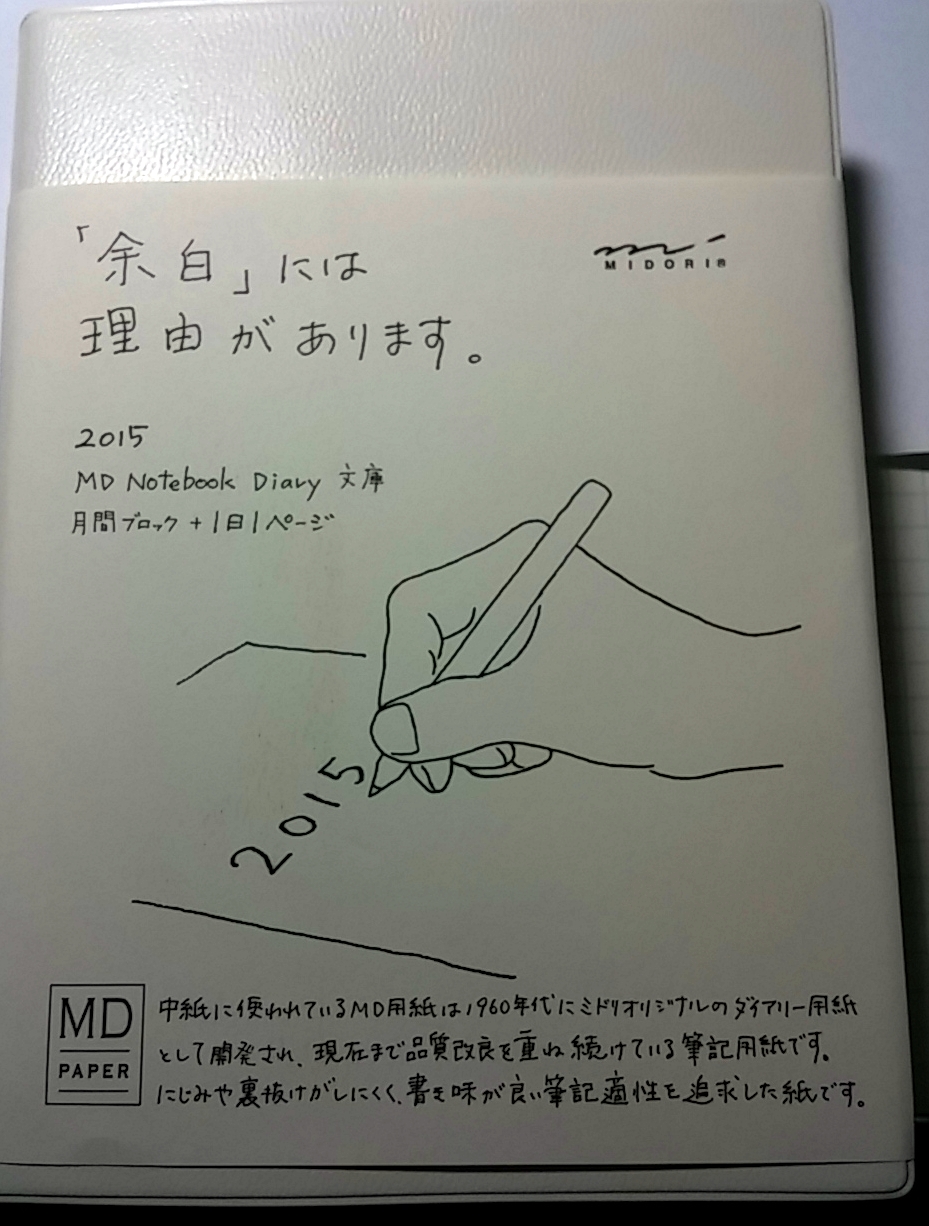 「余白」には
MIDORI®
理由があります。
2015
MD Notebook Diary 文庫
月間ブロック + 1日1ページ
2015
MD
PAPER
中紙に使われているMD用紙は1960年代にミドリオリジナルのダイアリー用紙
として開発され、現在まで品質改良を重ね続けている筆記用紙です。
にじみや裏抜けがしにくく、書き味が良い筆記適性を追求した紙です。